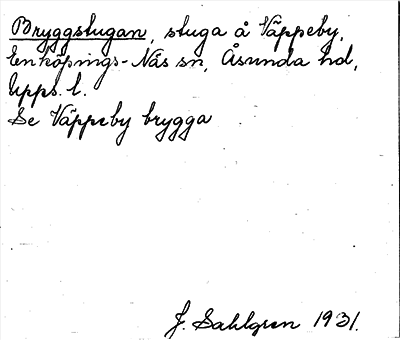 Bryggstugan, stuga å Väppeby,
Enköpings-Näs sn, Åsunda hd,
Upps. l.
Se Väppeby brygga
J. Sahlgren 1931.